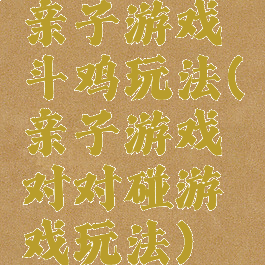 亲子游戏
斗鸡玩法(
亲子游戏
对对碰游
戏玩法)